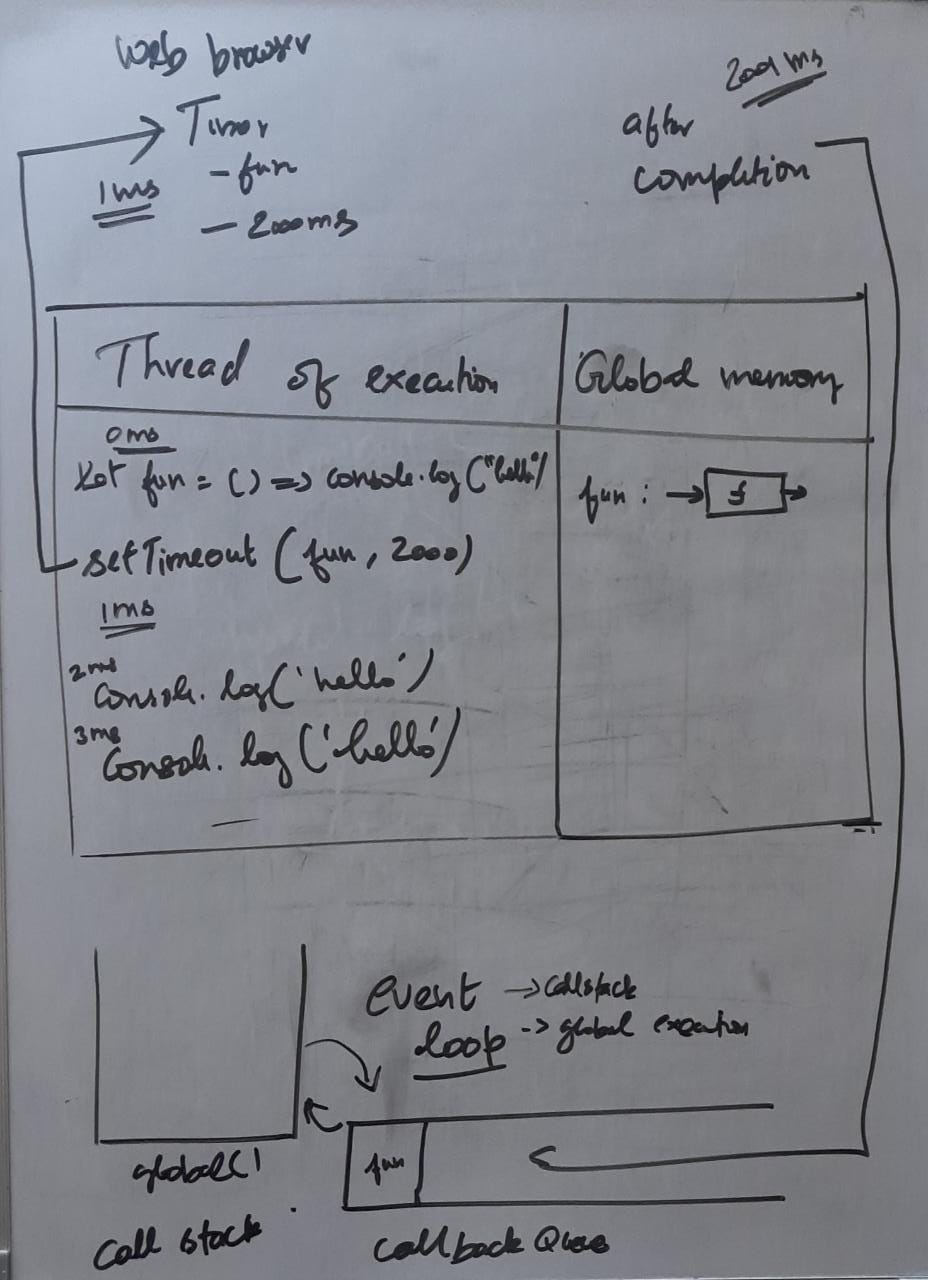 Web browser
2001 ms
Timer
after
1ms
- fun
completion
- 2000ms
Thread of execution
Global memory
0ms
let fun = () => console.log("hello")
fun : → f →
setTimeout (fun, 2000)
1ms
2ms
console.log('hello')
3ms
Console.log('hello')
event → callstack
loop -> global execution
fun
global()
Call Stack
Callback Queue